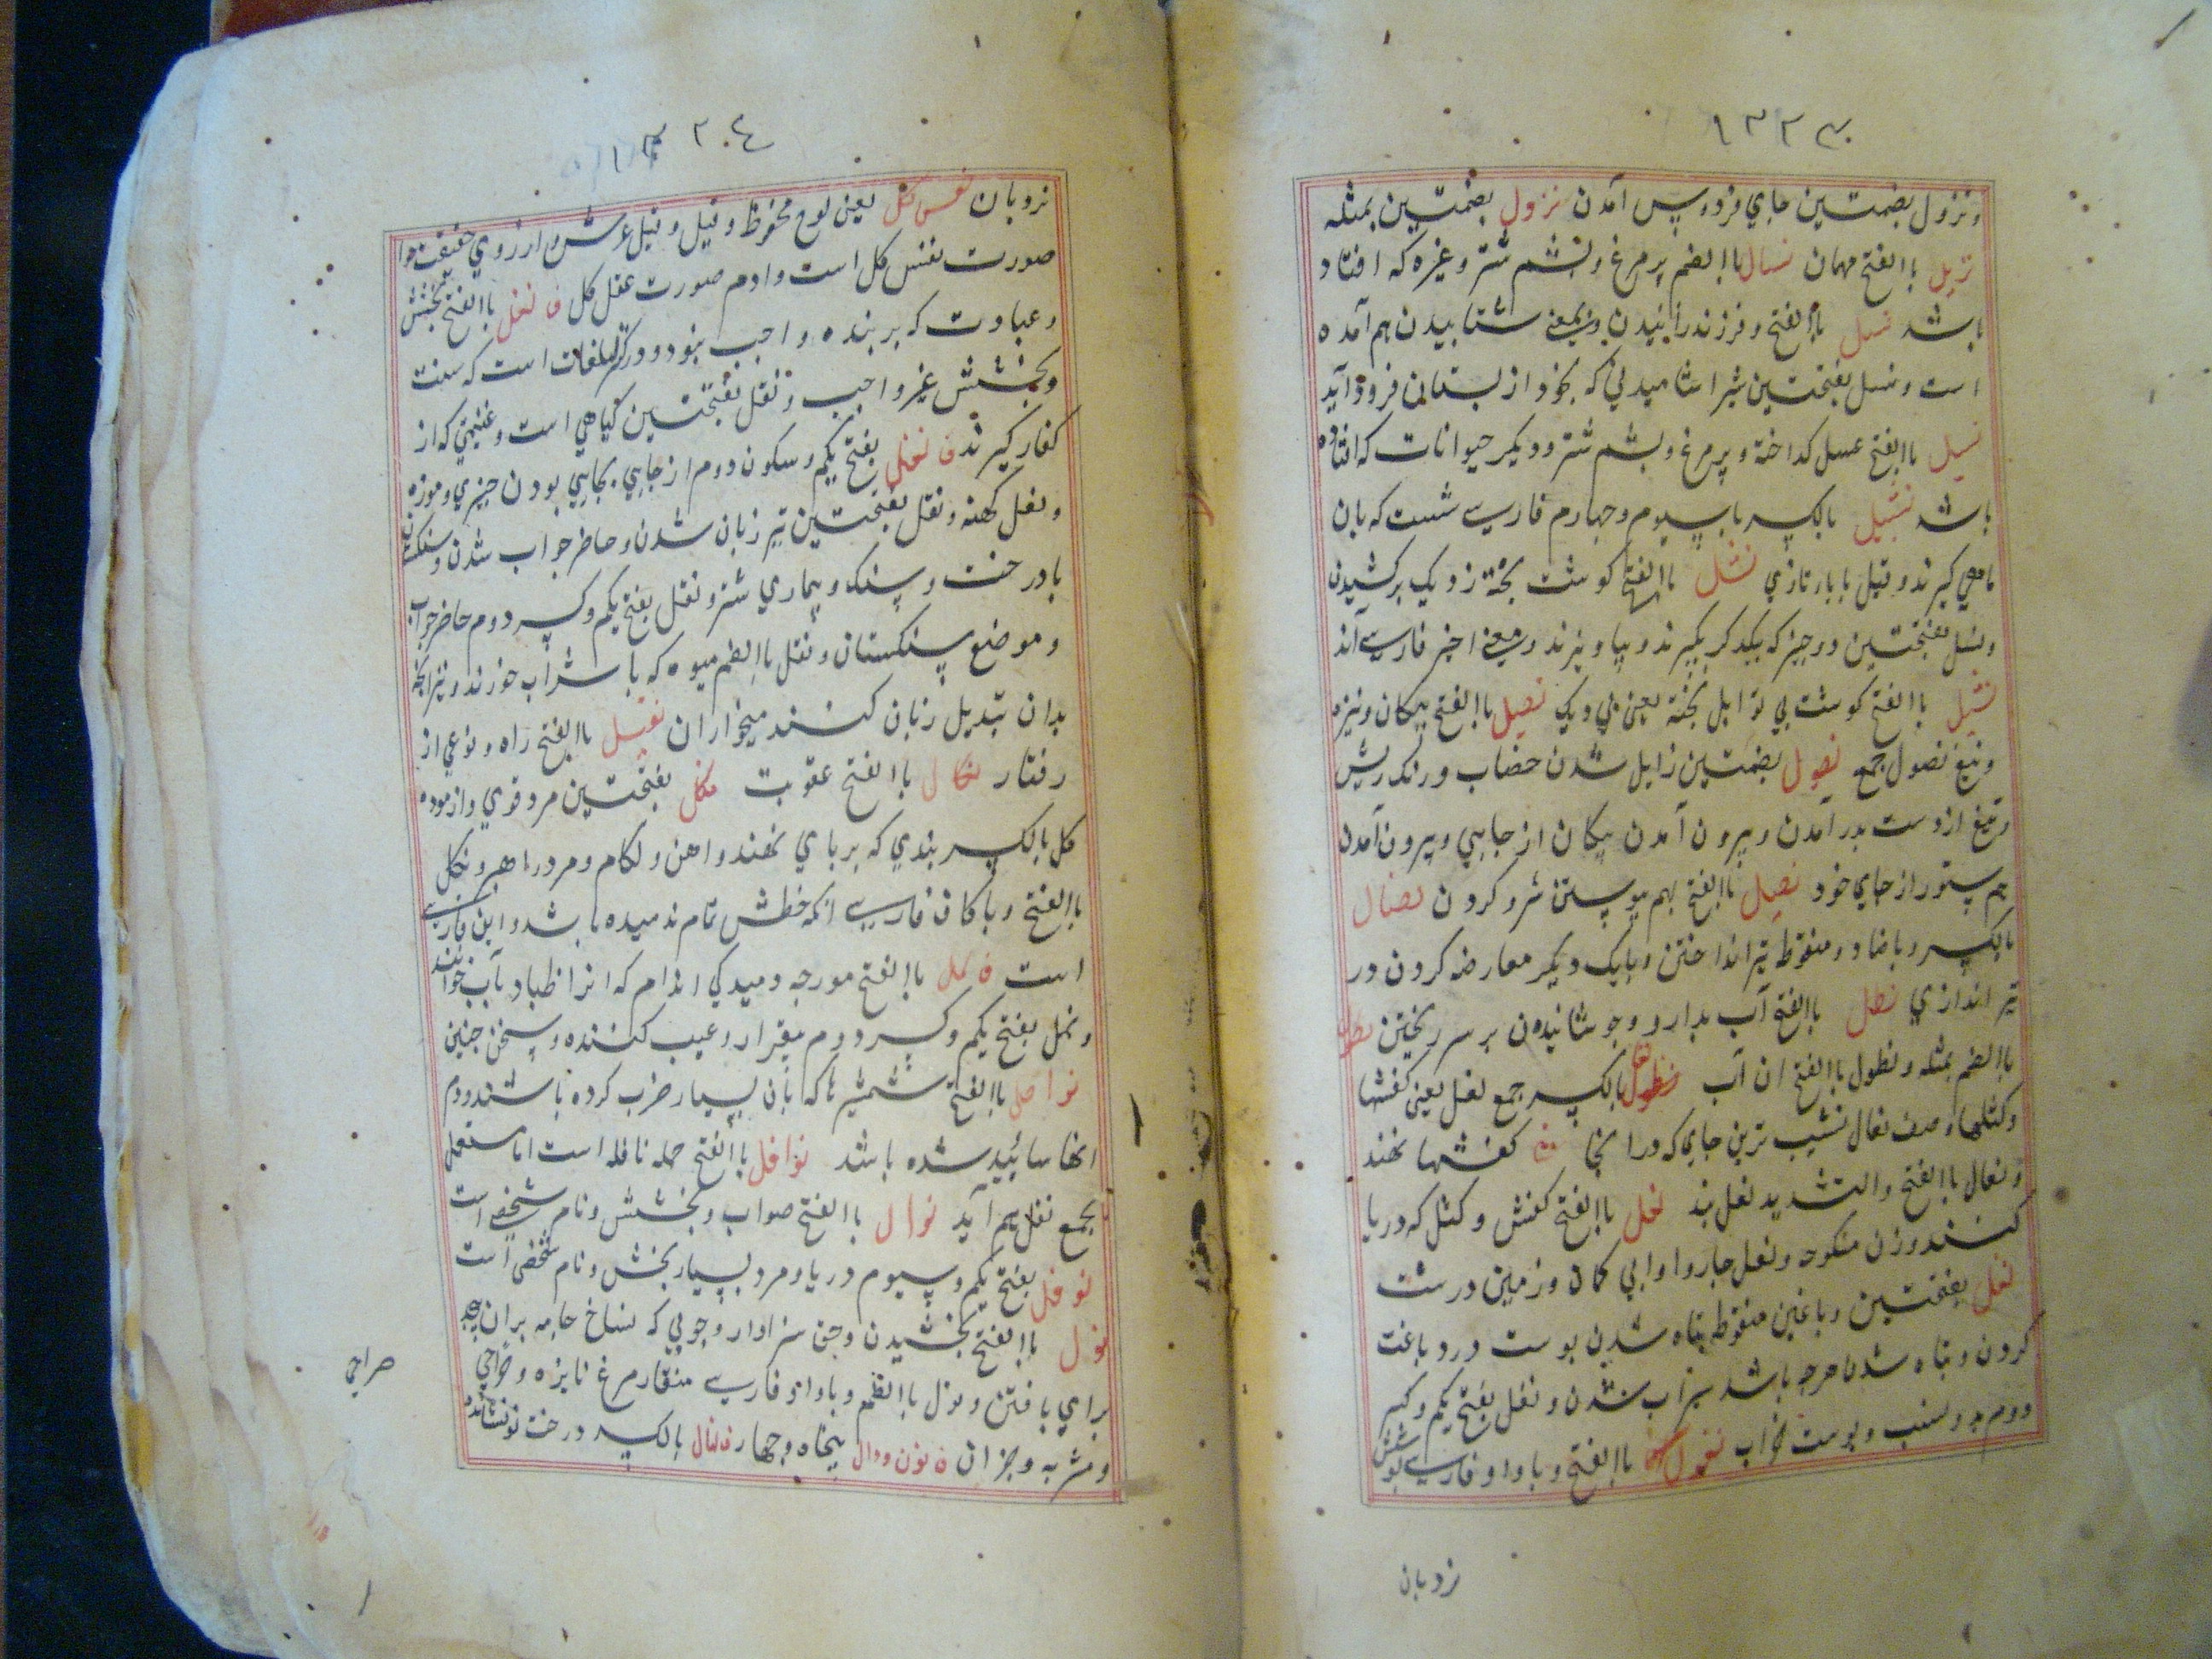 ۱۳۲۳
ونزول بضمتین جاي فرود وپس آمدن نزول بضمتین بمثله
نزیل باالفتح مهمان نسال باالضم پر مرغ وپشم شتر وغیره که افتاد
باشد نسل باالفتح وفرزند زائیدن وبمعني شتابیدن هم آمده
است ونسل بفتحتین شیر اشامیدني که بخود از پستان فرود آید
نسیل باالفتح عسل کداخته وپر مرغ وپشم شتر ودیکر حیوانات که افتاده
باشد نشپیل بالکسر با سیوم وچهارم فارسي شست که بان
ماهي کیرند وقیل با باء تازي نشل باالفتح کوشت پخته زدیک برکشیدن
ونشل بفتحتین دو چیز که بیکدکر بکیرند وبیاویزند ومعني اخیر فارسي آند
نشیل باالفتح کوشت بي توابل پخته یعني بي ویک نصل باالفتح پیکان ونیزه
وتیغ نصول جمع نصول بضمتین زایل شدن خضاب ورنک ریش
وتیغ از دست بدر آمدن وبیرون آمدن پیکان از جایي وبیرون آمدن
هم ستور از جاي خود نصیل باالفتح بهم پیوستن سر وکردن نضال
بالکسر وباضاد ومنقوطه تیر انداختن وبایک دیکر معارضه کردن در
تیر اندازي نطل باالفتح آب بدارو وجوشانیدن بر سر ریختن نطل
باالضم بمثله ونطول باالفتح ان آب نعال بالکسر جمع نعل یعني کفشها
وکتلها وصف نعال نشیب ترین جاي که در انجا کفشها نهند
ونعال باالفتح والتشدید نعل بند نعل باالفتح کفش وکتل که در پا
کنند وزن منکوحه ونعل چاروا وابي کمان وزمین درشت
نغل بفتحتین وباغین منقوطه تباه شدن پوست در دباغت
کردن وتباه شدن هرچه باشد خراب شدن ونغل بفتح یکم وکسر
دوم بد ونسب وپوست خراب نغول باالفتح وباواو فارسي
نردبان
۲۰۴
نردبان نفس کل یعني لوح محفوظ وقیل وقیل عرش وازروي حقیقت حوا
صورت نفس کل است وادم صورت عقل کل ف نفل باالفتح بخشش
وعبادت که بر بنده واجب نبود ودر کنز اللغات است که سنت
وبخشش غیر واجب ونفل بفتحتین کیاهي است وغنیمتي که از
کفار کیرند ف نقل بفتح یکم وسکون دوم از جایي بجایي بودن چیزي وموزه
ونعل کهنه ونقل بفتحتین تیز زبان شدن وحاضر جواب شدن وسنکستان
با درخت وسنک وبیماري شتر ونقل بفتح یکم وکسر دوم حاضر جواب
وموضع سنکستان ونقل باالضم میوه که با شراب خورند ونیز انچه
بدان تبدیل زبان کنند میخواران نقیل باالفتح راه ونوعي از
رفتار نکال باالفتح عقوبت نکل بفتحتین مرد قوي وازموده
نکل بالکسر بندي که بر پاي نهند واهن ولکام ومرد راهبر ونکل
باالفتح وباکاف فارسي انکه خطش تمام ندمیده باشد واین فارسي
است ف نمل باالفتح مورچه ودمیدکي اندام که انرا طباد بآب خوانند
ونمل بفتح یکم وکسر دوم بیقرار وعیب کننده وسخن چین
نواحل باالفتح شمشیر ها که بان بسیار ضرب کرده باشند ودم
انها سائیده شده باشد نوافل باالفتح جمله نافله است اما مستعمل
بجمع نفل هم آید نوال باالفتح صواب وبخشش ونام شخصي است
نوفل بفتح یکم وسیوم دریا ومرد بسیار بخشش ونام شخصي است
نول باالفتح بخشیدن وحق سزاوار وچوبي که نساج جامه بران پیچد
براي بافتن ونول باالضم وباواو فارسي منقار مرغ نایزه وصراحي
ومشربه وجزان ف نون ودال پنجاه وچهار ف نهال بالکسر درخت نونشانده
صراحي